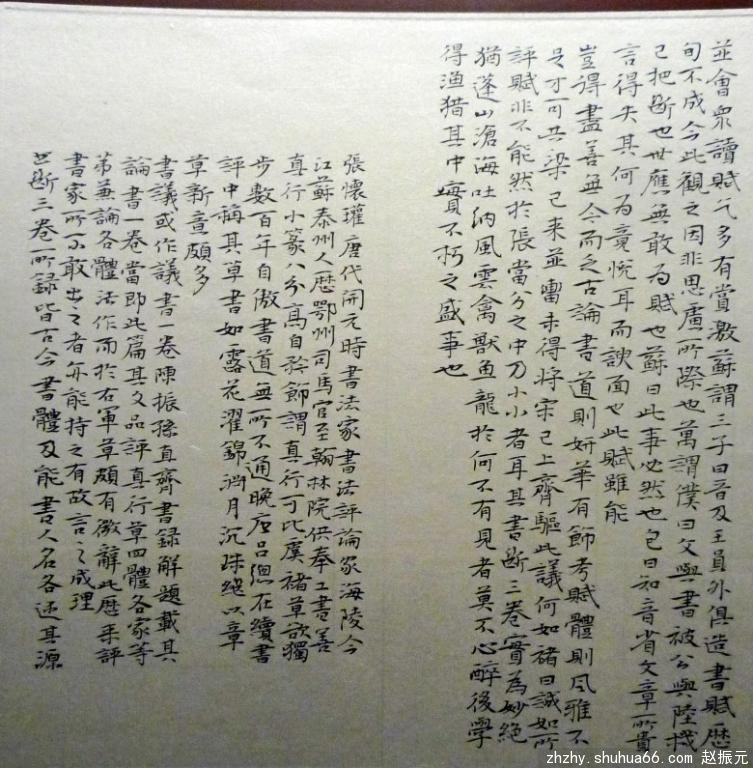 並會衆讀賦訖多有賞激蘇謂三子曰晉及王員外俱造書賦歷
旬不成今此觀之因非思慮所際也萬謂僕曰文與書被公與陸機
已把斷也世應無敢為賦也蘇曰此事必然也包曰知音省文章所貴
言得失其何為竟悅耳而諛面也此賦雖能
豈得盡善無今而之古論書道則妍華有飾考賦體則風雅不
足才可共梁已来並轡未得將宋已上齊驅此議何如褚曰誠如所
評賦非不能然於張當分之中乃小小者耳其書斷三卷實為妙絕
猶蓬山滄海吐納風雲禽獸魚龍於何不有見者莫不心醉後學
得渔猎其中實不朽之盛事也
張懷瓘唐代開元時書法家書法評論家海陵今
江蘇泰州人歷鄂州司馬官至翰林院供奉工書善
真行小篆八分高自矜飾謂真行可比虞褚草欲獨
步數百年自傲書道無所不通晚唐吕總在續書
評中稱其草書如露花濯錦澗月沉珠絕以章
草新意頗多
書議或作議書一卷陳振孫直齋書録解題載其
論書一卷當即此篇其文品評真行草四體各家等
第兼論各體法作而於右軍草頗有微辭此歷来評
書家所不敢出之者亦能持之有故言之成理
書斷三卷所録皆古今書體及能書人名各述其源
zhzhy.shuhua66.com 赵振元